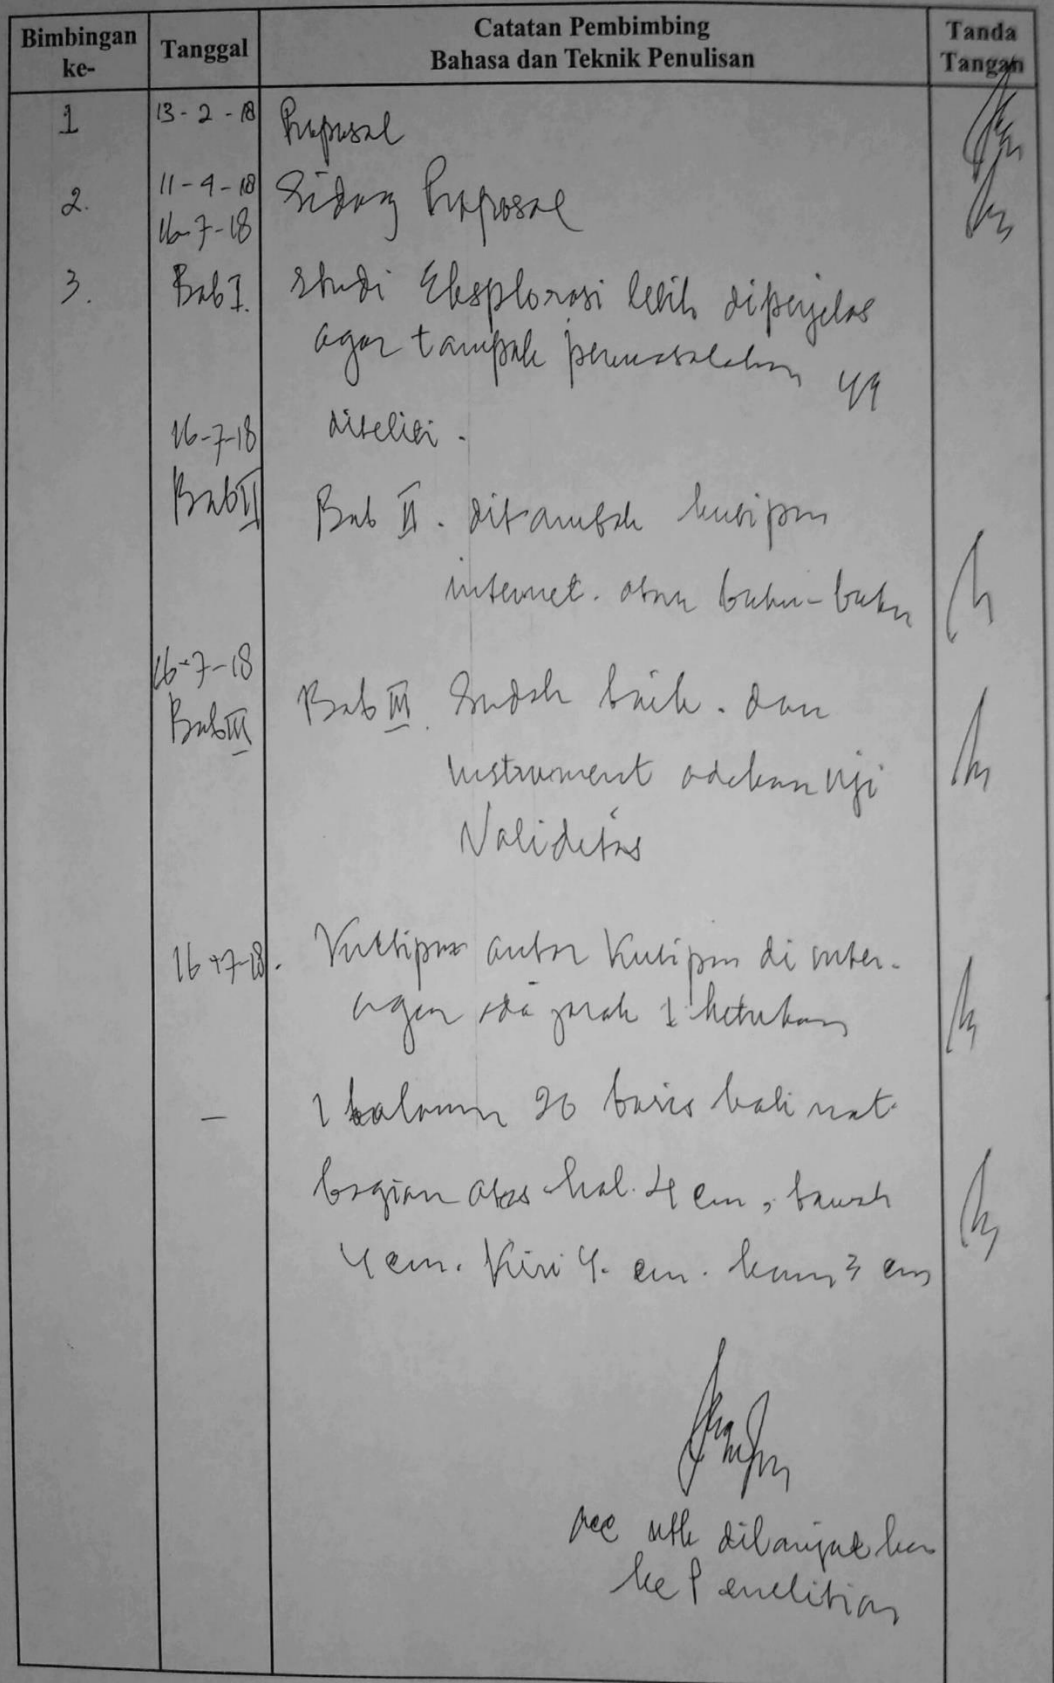 Bimbingan ke- Tanggal Catatan Pembimbing Bahasa dan Teknik Penulisan Tanda Tangan
1 13-2-18 Proposal
2. 11-4-18 Sidang Proposal
16-7-18
3. Bab I. Studi Eksplorasi lebih diperjelas
agar tampak permasalahan yg
16-7-18 diteliti.
Bab II Bab II. ditambah kutipan
internet. atau buku-buku
16-7-18
Bab III Bab III Sudah baik. dan
instrument adakan uji
Validitas
16-7-18. Kutipan antar Kutipan di inter-
agar ada jarak 1 ketukan
- 1 halaman 26 baris
bagian atas hal. 4 cm, bawah
4 cm. Kiri 4. cm. kanan 3 cm
acc utk dilanjutkan
ke Penelitian